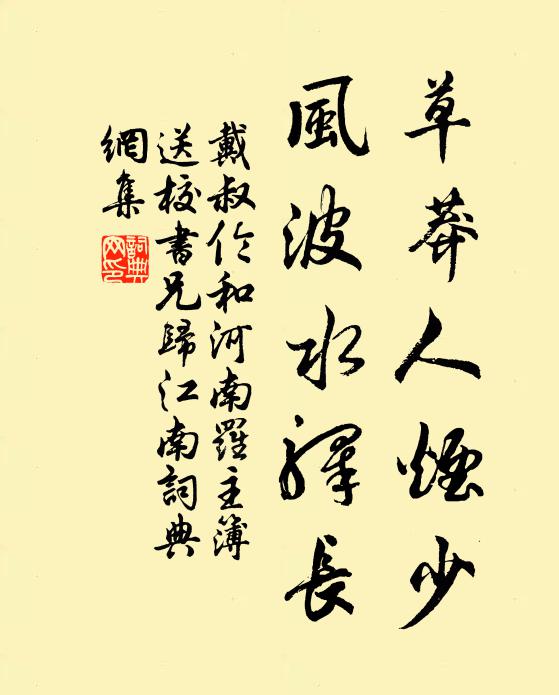 草莽人煙少
風波水驛長
戴叔伦和河南羅主簿
送校書兄歸江南詞典
網集
詞典網印